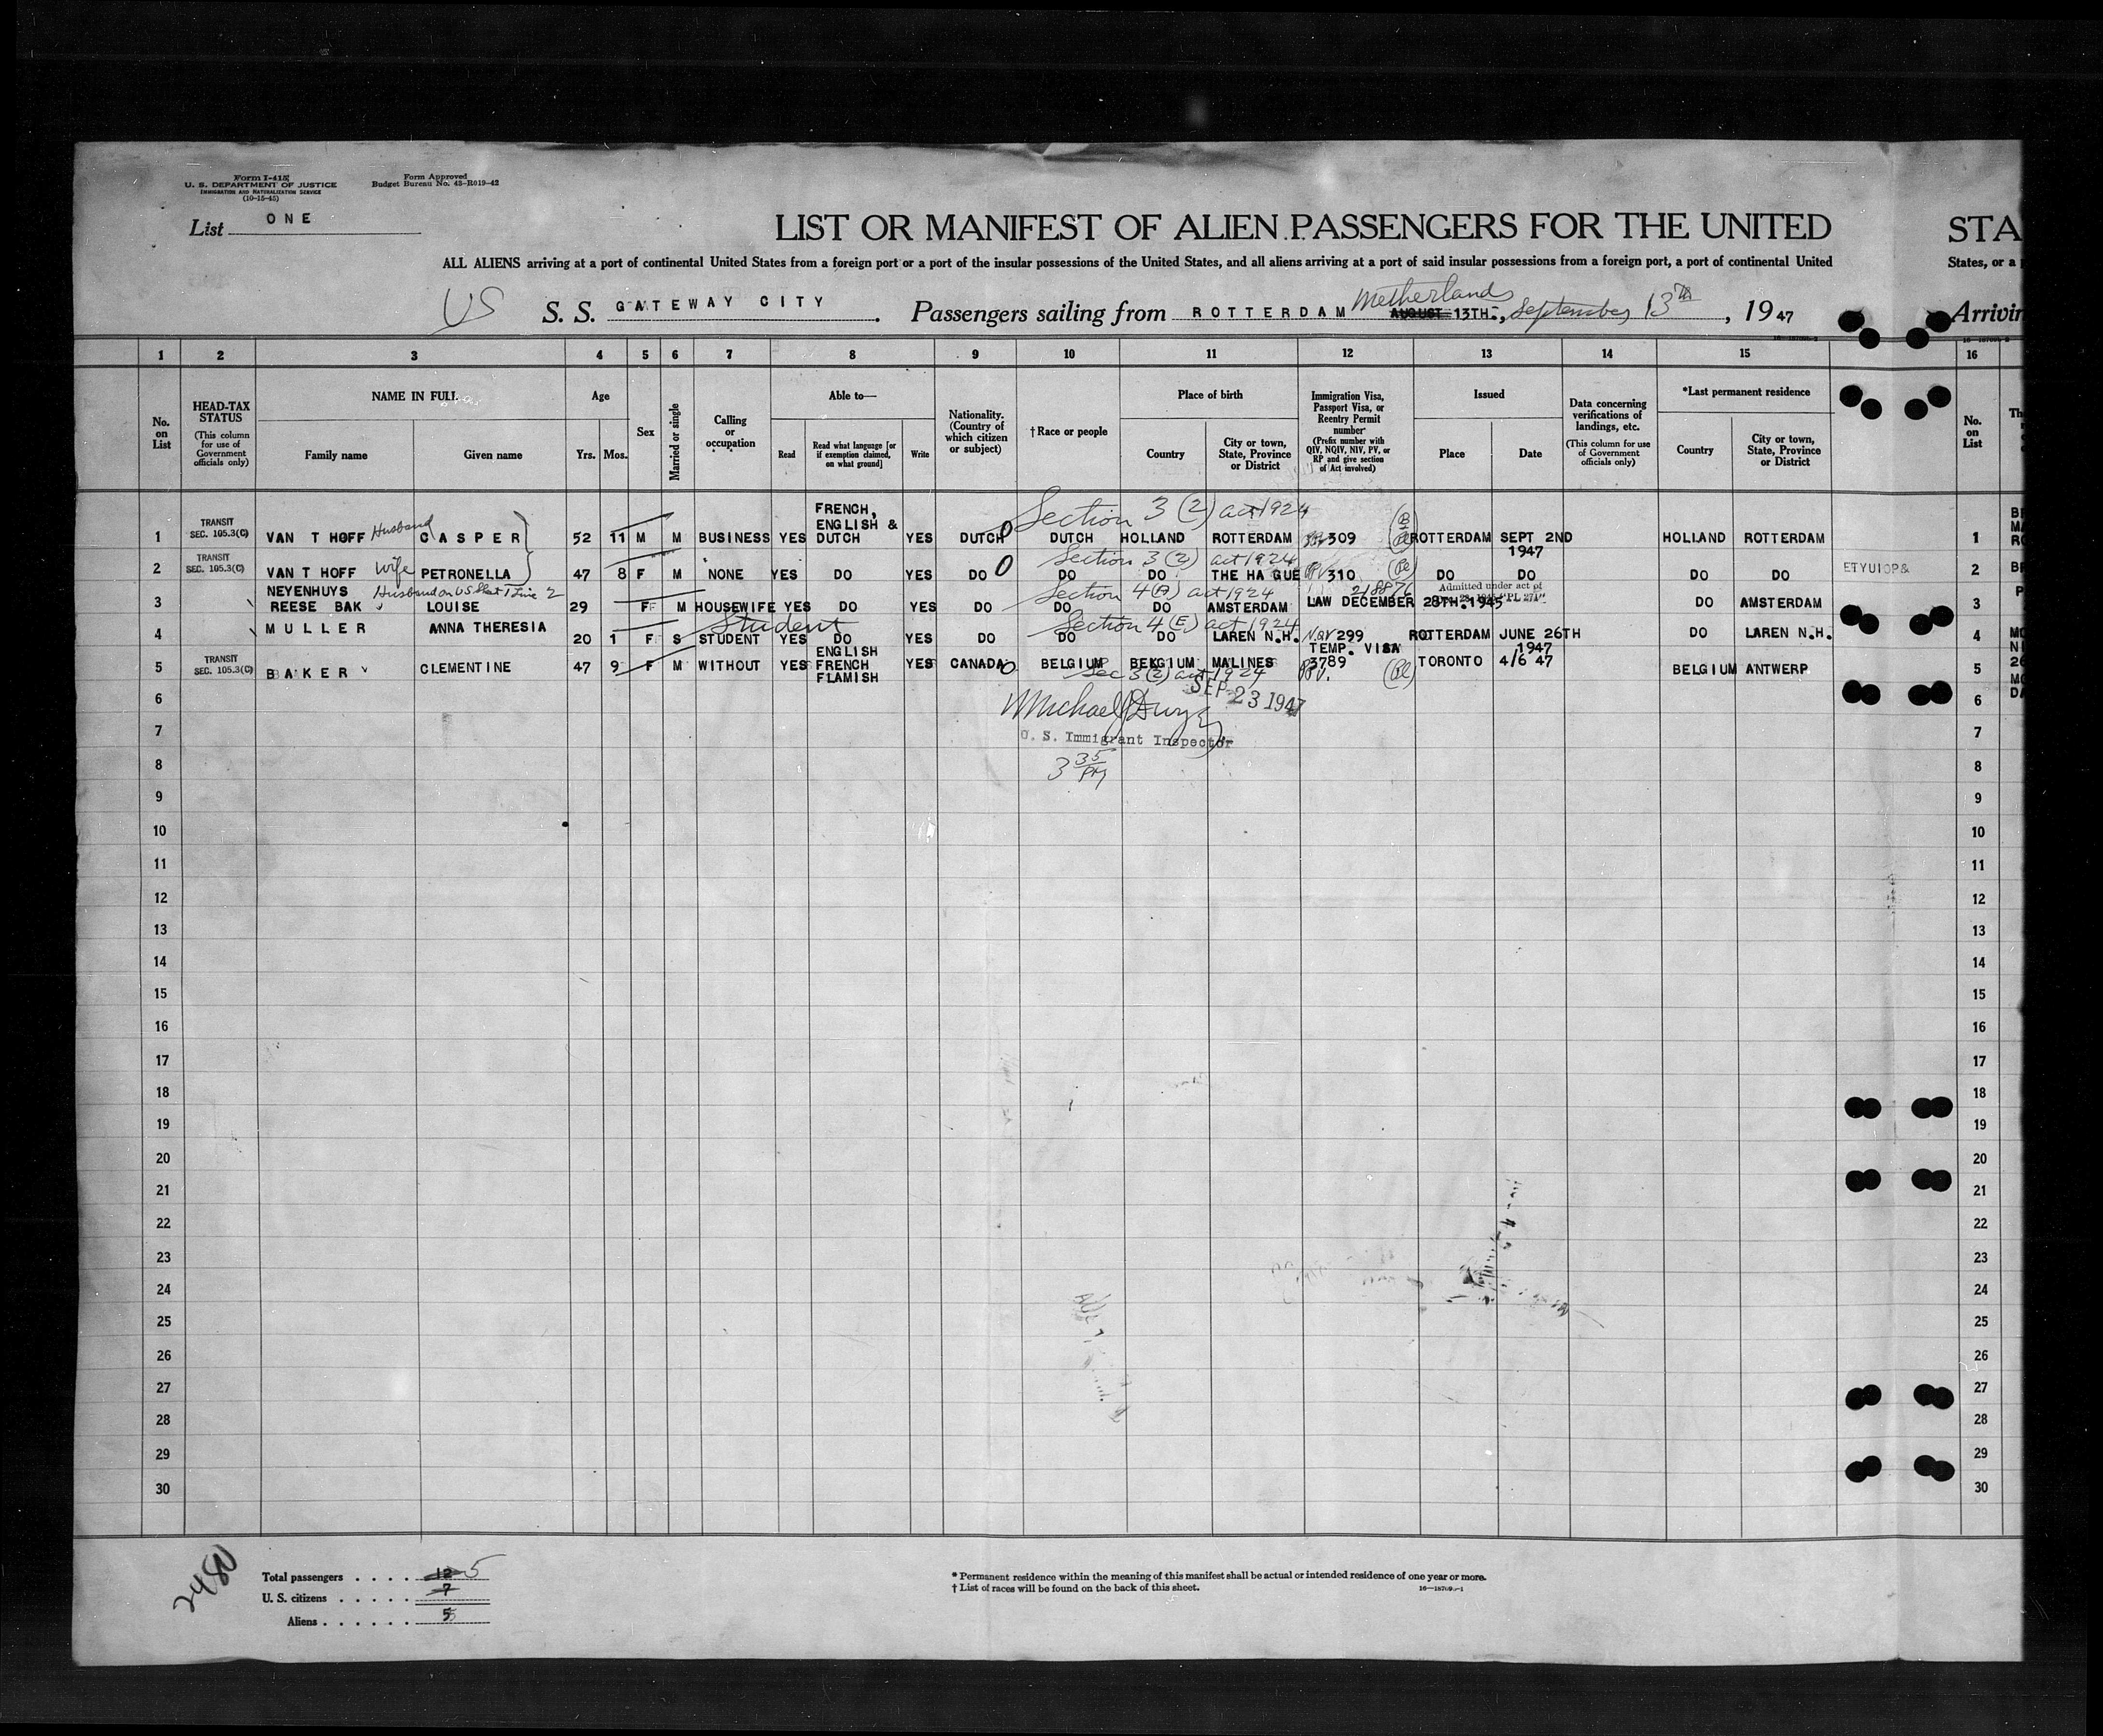 Form I-415
U. S. DEPARTMENT OF JUSTICE
IMMIGRATION AND NATURALIZATION SERVICE
(10-15-45)
Form Approved
Budget Bureau No. 43-R019-42
List ONE
LIST OR MANIFEST OF ALIEN PASSENGERS FOR THE UNITED STA
ALL ALIENS arriving at a port of continental United States from a foreign port or a port of the insular possessions of the United States, and all aliens arriving at a port of said insular possessions from a foreign port, a port of continental United States, or a
US S. S. GATEWAY CITY. Passengers sailing from ROTTERDAM Netherlands AUGUST 13TH., September 13th, 1947 Arrivin
1 2 3 4 5 6 7 8 9 10 11 12 13 14 15 16
No. on List
HEAD-TAX STATUS
(This column for use of Government officials only)
NAME IN FULL
Family name Given name
Age
Yrs. Mos.
Sex
Married or single
Calling or occupation
Able to—
Read
Read what language [or if exemption claimed, on what ground]
Write
Nationality. (Country of which citizen or subject)
† Race or people
Place of birth
Country
City or town, State, Province or District
Immigration Visa, Passport Visa, or Reentry Permit number
(Prefix number with QIV, NQIV, NIV, PV, or RP and give section of Act involved)
Issued
Place Date
Data concerning verifications of landings, etc.
(This column for use of Government officials only)
*Last permanent residence
Country
City or town, State, Province or District
No. on List
Section 3 (2) act 1924
1 TRANSIT SEC. 105.3(C) VAN T HOFF Husband CASPER 52 11 M M BUSINESS YES FRENCH, ENGLISH & DUTCH YES DUTCH DUTCH HOLLAND ROTTERDAM 309 ROTTERDAM SEPT 2ND 1947 HOLLAND ROTTERDAM 1
Section 3 (2) act 1924
2 TRANSIT SEC. 105.3(C) VAN T HOFF Wife PETRONELLA 47 8 F M NONE YES DO YES DO DO DO THE HAGUE PV 310 DO DO DO DO ETYUIOP& 2
Section 4 (A) act 1924 218876 Admitted under act of Dec. 28, 1945 "PL 271"
3 NEYENHUYS REESE BAK Husband on US Sheet 1 Line 2 LOUISE 29 F M HOUSEWIFE YES DO YES DO DO DO AMSTERDAM LAW DECEMBER 28TH.1945 DO AMSTERDAM 3
Student Section 4 (E) act 1924
4 MULLER ANNA THERESIA 20 1 F S STUDENT YES DO YES DO DO DO LAREN N.H. NQV 299 ROTTERDAM JUNE 26TH 1947 DO LAREN N.H. 4
5 TRANSIT SEC. 105.3(C) BAKER CLEMENTINE 47 9 F M WITHOUT YES ENGLISH FRENCH FLAMISH YES CANADA BELGIUM BELGIUM MALINES TEMP. VISA 3789 PV. TORONTO 4/6 47 BELGIUM ANTWERP 5
Sec 3 (2) act 1924
SEP 23 1947
6 6
U. S. Immigrant Inspector
7 7
3 35 PM
8 8
9 9
10 10
11 11
12 12
13 13
14 14
15 15
16 16
17 17
18 18
19 19
20 20
21 21
22 22
23 23
24 24
25 25
26 26
27 27
28 28
29 29
30 30
2480
Total passengers . . . . 12 5
U. S. citizens . . . . . 7
Aliens . . . . . . 5
* Permanent residence within the meaning of this manifest shall be actual or intended residence of one year or more.
† List of races will be found on the back of this sheet.